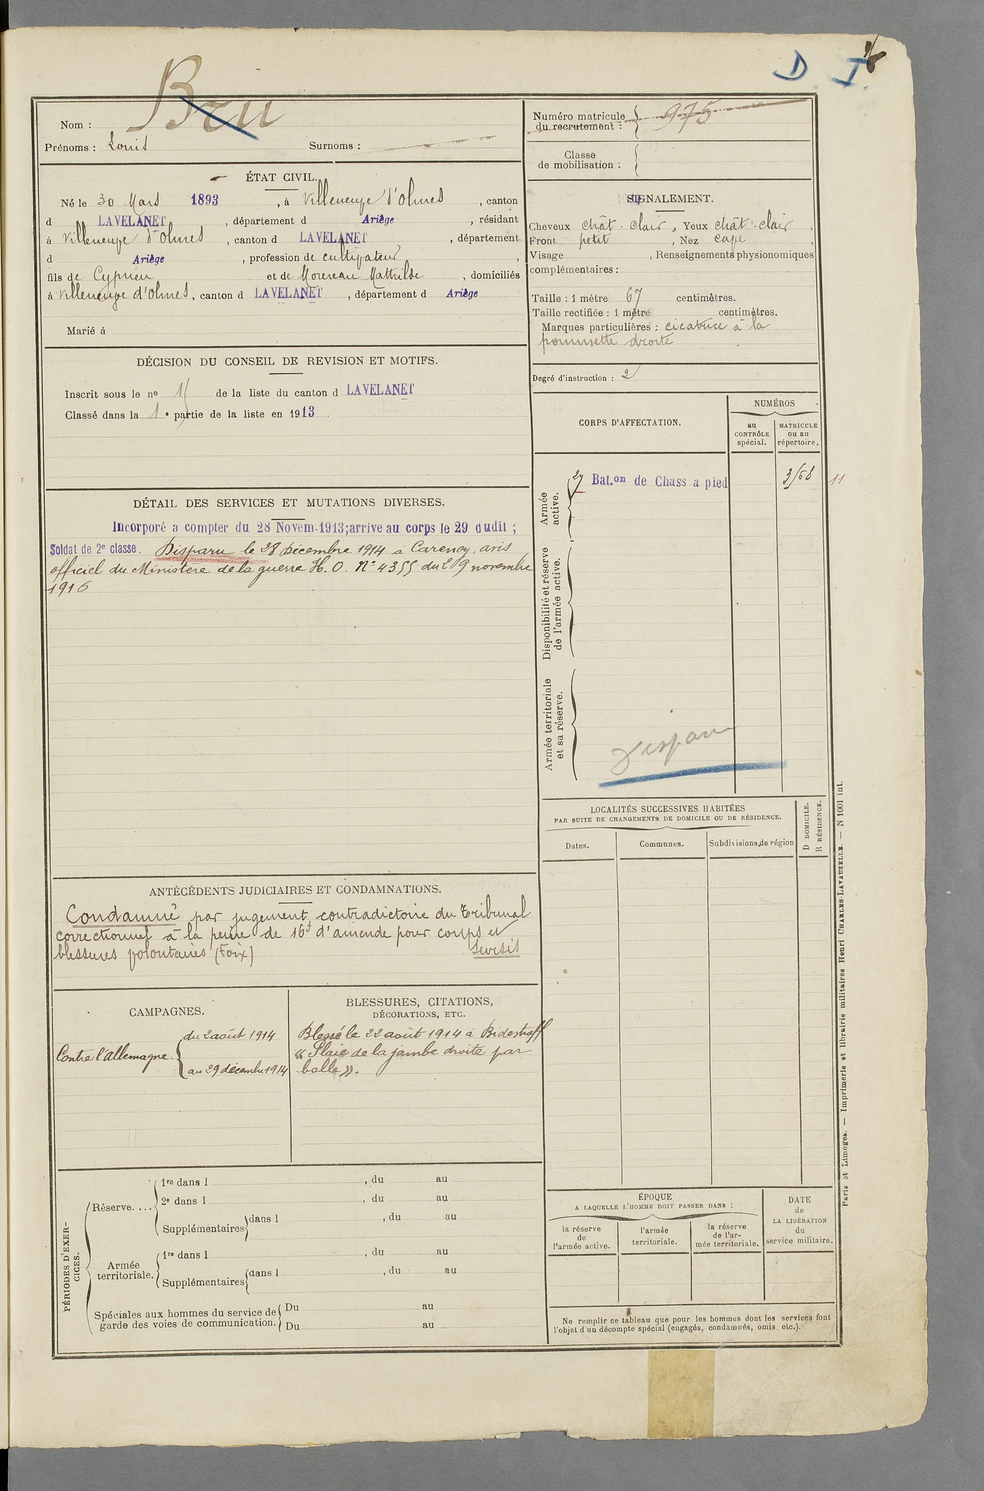 D I
Nom : Bru
Prénoms : Louis Surnoms :
Numéro matricule du recrutement : 975
Classe de mobilisation :
ÉTAT CIVIL.
Né le 30 Mars 1893, à Villeneuve d'Olmes, canton
d LAVELANET, département d Ariège, résidant
à Villeneuve d'Olmes, canton d LAVELANET, département
d Ariège, profession de cultivateur,
fils de Cyprien et de Mathilde, domiciliés
à Villeneuve d'Olmes, canton d LAVELANET, département d Ariège
Marié à
SIGNALEMENT.
Cheveux chât. clair, Yeux chât. clair.
Front petit, Nez cave,
Visage , Renseignements physionomiques
complémentaires :
Taille : 1 mètre 67 centimètres.
Taille rectifiée : 1 mètre centimètres.
Marques particulières : cicatrice à la
pommette droite
Degré d'instruction : 2
DÉCISION DU CONSEIL DE REVISION ET MOTIFS.
Inscrit sous le no de la liste du canton d LAVELANET
Classé dans la 1e partie de la liste en 1913
CORPS D'AFFECTATION.
NUMÉROS
au CONTRÔLE spécial.
MATRICULE ou au répertoire.
Armée active.
27 Bat.on de Chass a pied
11
Disponibilité et réserve de l'armée active.
Armée territoriale et sa réserve.
Disparu
DÉTAIL DES SERVICES ET MUTATIONS DIVERSES.
Incorporé a compter du 28 Novem. 1913; arrive au corps le 29 dudit ;
Soldat de 2e classe. Disparu le 28 Décembre 1914 a Carency, avis
officiel du Ministère de la guerre H. O. No 4355 du 29 novembre
1916
LOCALITÉS SUCCESSIVES HABITÉES
PAR SUITE DE CHANGEMENTS DE DOMICILE OU DE RÉSIDENCE.
Dates.
Communes.
Subdivisions de région
D DOMICILE.
R RÉSIDENCE.
ANTÉCÉDENTS JUDICIAIRES ET CONDAMNATIONS.
Condamné par jugement contradictoire du Tribunal
correctionnel à la peine de 16f d'amende pour coups et
blessures volontaires (Foix) Sursis
CAMPAGNES.
Contre l'Allemagne { du 2 août 1914
au 29 décembre 1914
BLESSURES, CITATIONS,
DÉCORATIONS, ETC.
Blessé le 22 août 1914 à Bidestroff
« Plaie de la jambe droite par
balle ».
PÉRIODES D'EXERCICES.
Réserve....
1re dans l , du au
2e dans l , du au
Supplémentaires dans l , du au
au
Armée territoriale.
1re dans l , du au
Supplémentaires dans l , du au
Spéciales aux hommes du service de garde des voies de communication.
Du au
Du au
ÉPOQUE
A LAQUELLE L'HOMME DOIT PASSER DANS :
la réserve de l'armée active.
l'armée territoriale.
la réserve de l'armée territoriale.
DATE de LA LIBÉRATION du service militaire.
Ne remplir ce tableau que pour les hommes dont les services font
l'objet d'un décompte spécial (engagés, condamnés, omis, etc.).
Paris et Limoges. — Imprimerie et librairie militaires Henri CHARLES-LAVAUZELLE. — N 1001 int.